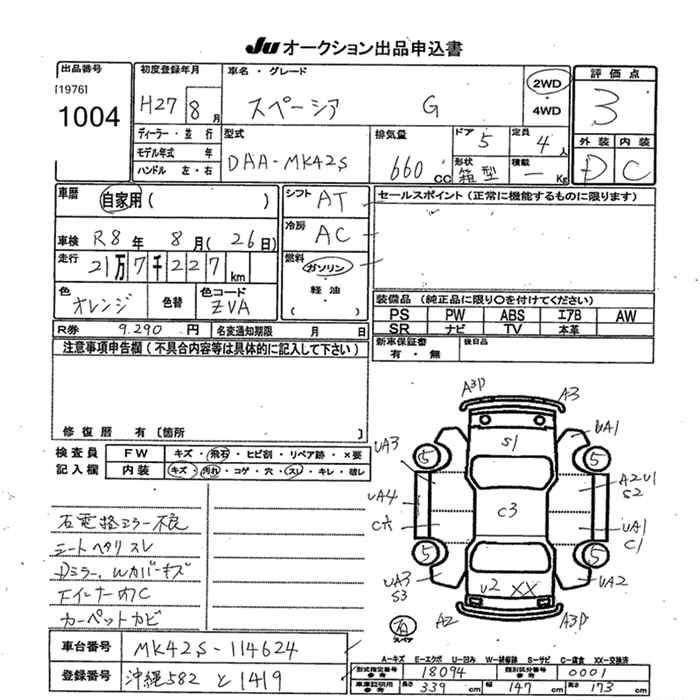 JU オークション出品申込書
出品番号
[1976]
1004
初度登録年月
H27 8月
車名・グレード
スペーシア G
2WD
4WD
評価点
3
外装 内装
D C
ディーラー・並行
モデル年式 年
ハンドル 左・右
型式
DAA-MK42S
排気量
660 CC
ドア 5
定員 4人
形状 箱型
積載 ― Kg
車歴 自家用( )
車検 R8年 8月(26日)
走行 21万7千227km
色 オレンジ
色替
色コード ZVA
シフト AT
冷房 AC
燃料
ガソリン
・
軽油
( )
セールスポイント(正常に機能するものに限ります)
装備品(純正品に限り〇を付けてください)
PS PW ABS エアB AW
SR ナビ TV 本革
新車保証書
有・無
後日品
R券 9,290 円
名変通知期限 月 日
注意事項申告欄(不具合内容等は具体的に記入して下さい)
修復歴 有〔箇所 〕
検査員
記入欄
FW キズ・飛石・ヒビ割・リペア跡・×要
内装 キズ・汚れ・コゲ・穴・スレ・キレ・破レ
右電格ミラー不良
シートヘタリスレ
Dミラー、Wカバーキズ
下インナーカバC
カーペットカビ
A3P A3
S1
UA3 UA1
5 5
A2U1
S2
UA4
C3
UA1
C1
5 5
UA3
S3
UA2
U2 XX
A2 A3P
スペア
A-キズ E-エクボ U-凹み W-補修跡 S-サビ C-腐食 XX-交換済
車台番号 MK42S-114624
登録番号 沖縄582 と 1419
型式指定番号
参考
18094
類別区分番号
参考
0001
車庫証明用
参考
長さ 339 cm 幅 147 cm 高さ 173 cm